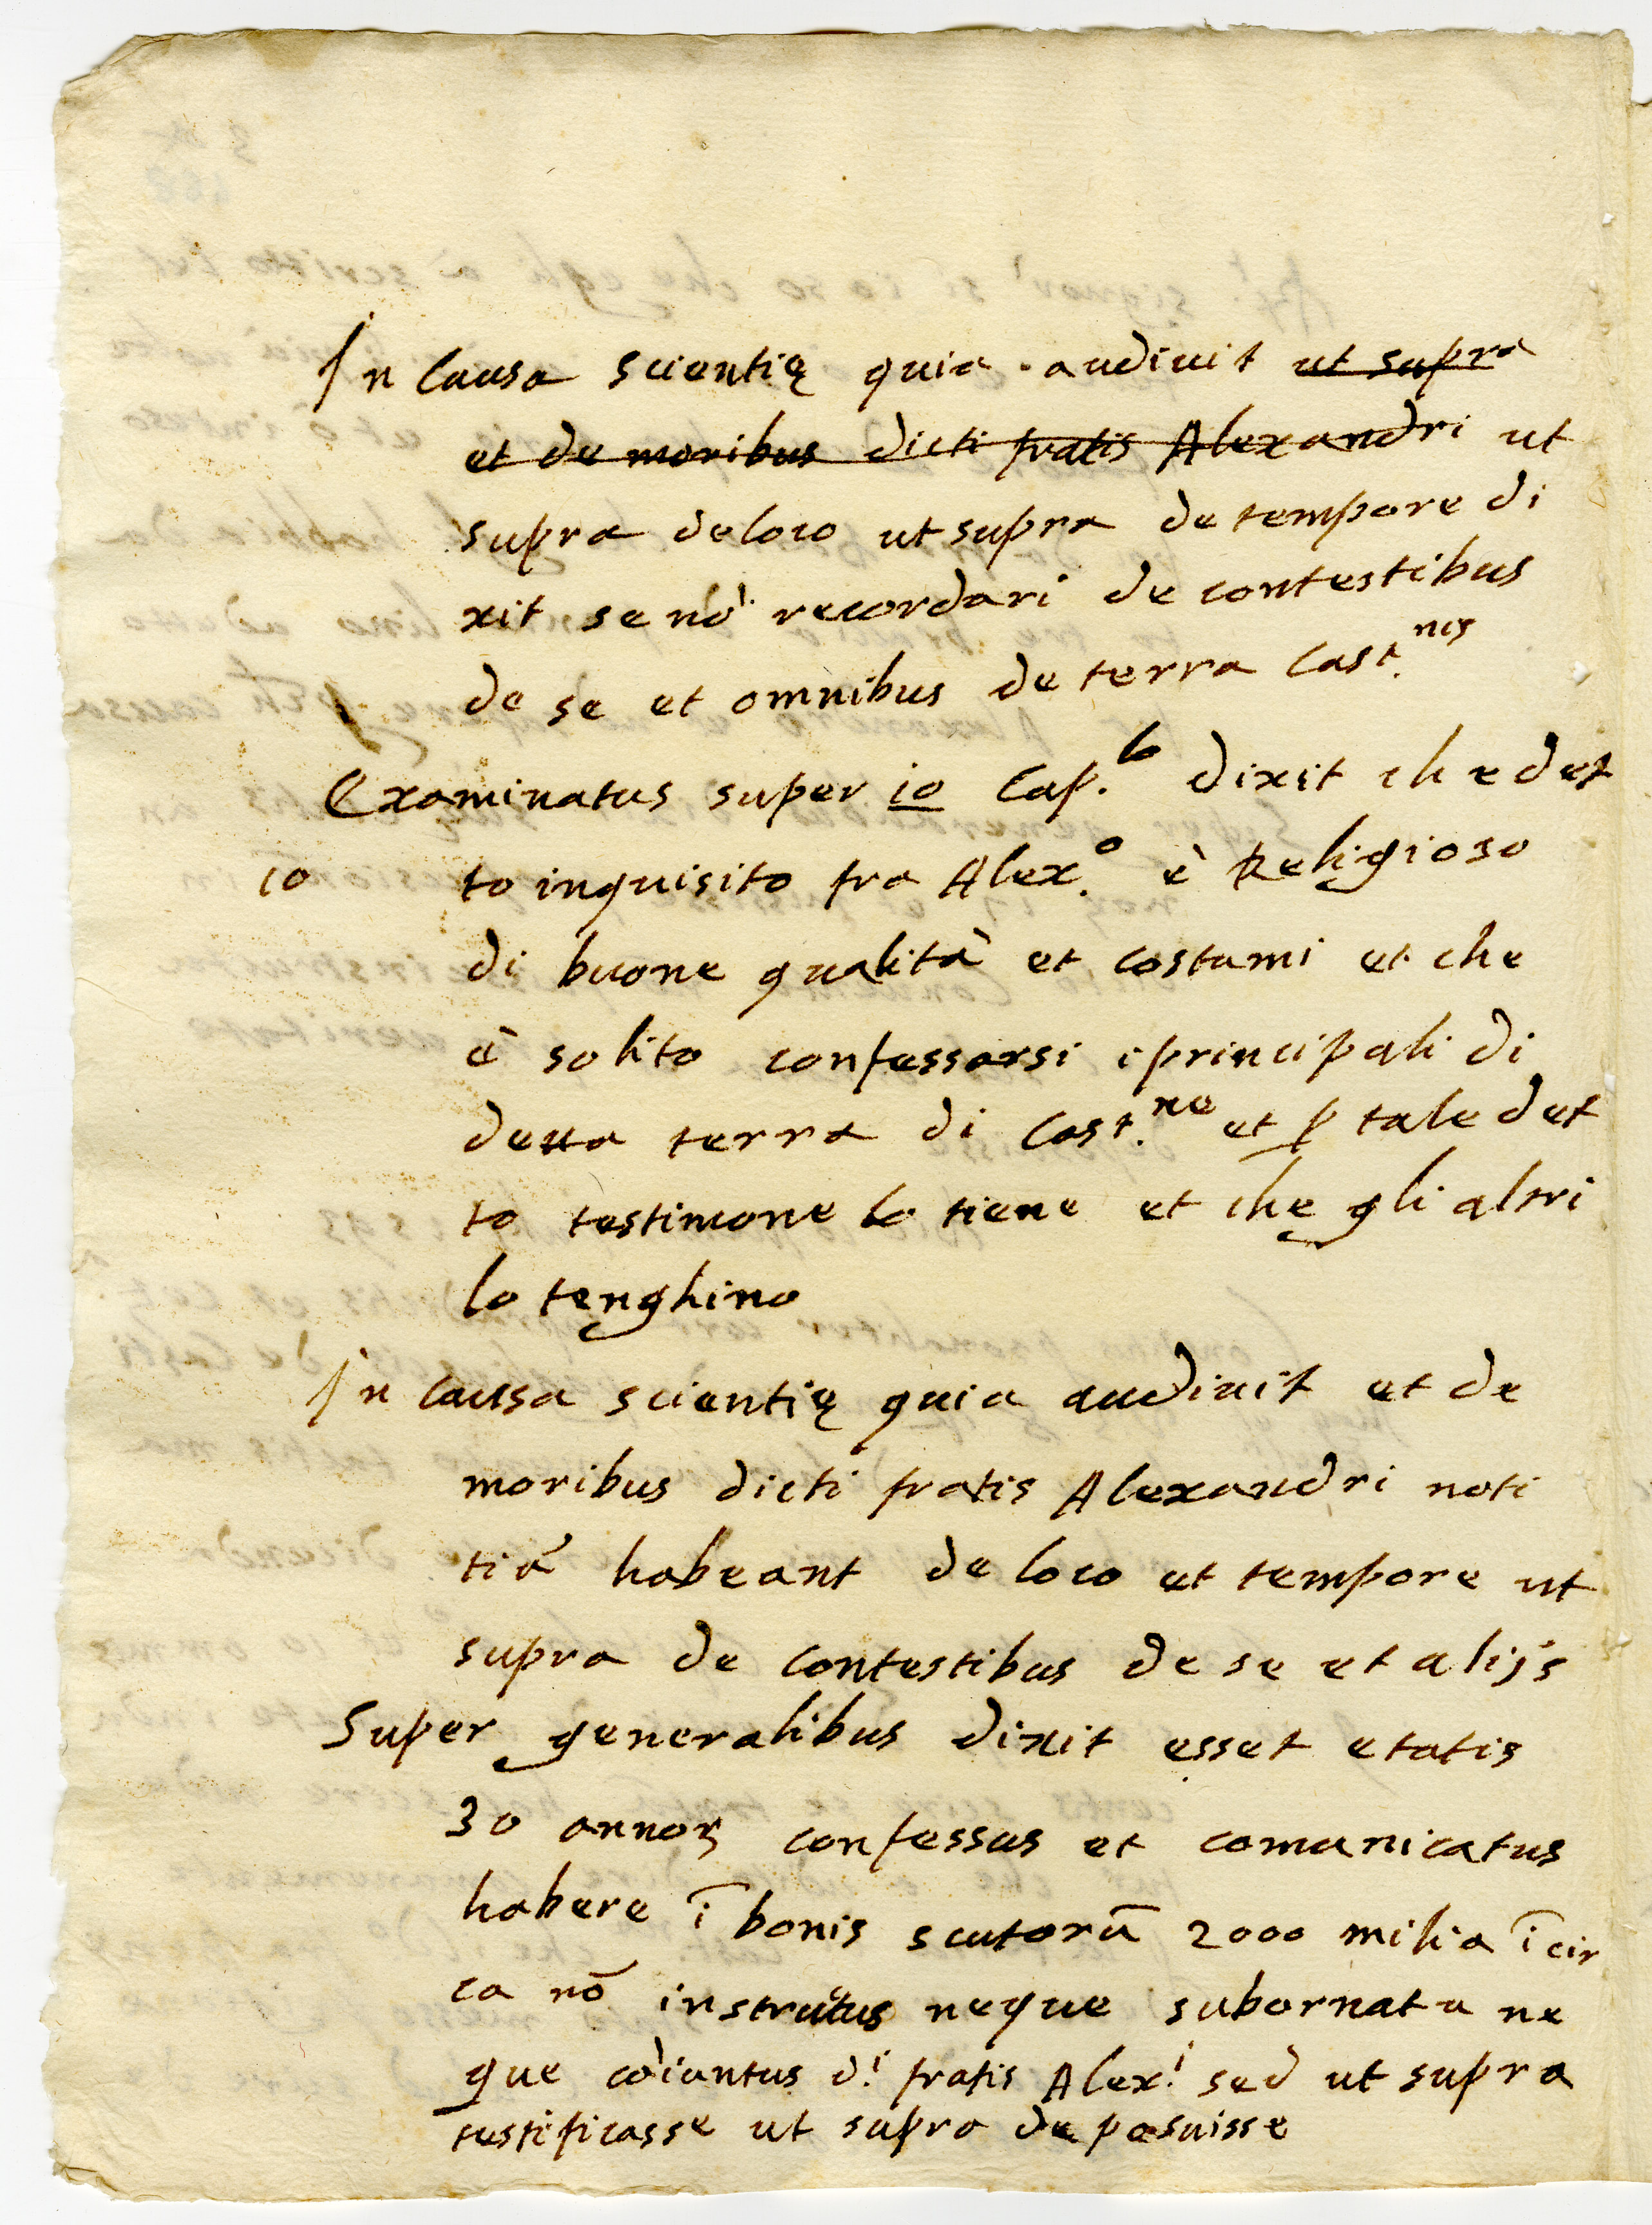 In causa scientię quia audiuit ut supra
et de moribus dicti fratis Alexandri ut
supra de loco ut supra de tempore di
xit se nō recordari de contestibus
de se et omnibus de terra Cast.nis
Examinatus super 10 Cap.lo dixit che det
10 to inquisito fra Alex.o è Religioso
di buone qualità et costumi et che
è solito confessarsi i principali di
detta terra di Cast.ne et p tale det
to testimone lo tiene et che gli altri
lo tenghino
In causa scientię quia audiuit et de
moribus dicti fratis Alexandri noti
tiā habeant de loco et tempore ut
supra de contestibus de se et alijs
Super generalibus dixit esset etatis
30 annoꝝ confessus et comunicatus
habere ī bonis scutorū 2000 milia ī cir
ca nō instrutus neque subornatu ne
que cōiuntus d.i fratis Alex.i sed ut supra
testificasse ut supra deposuisse